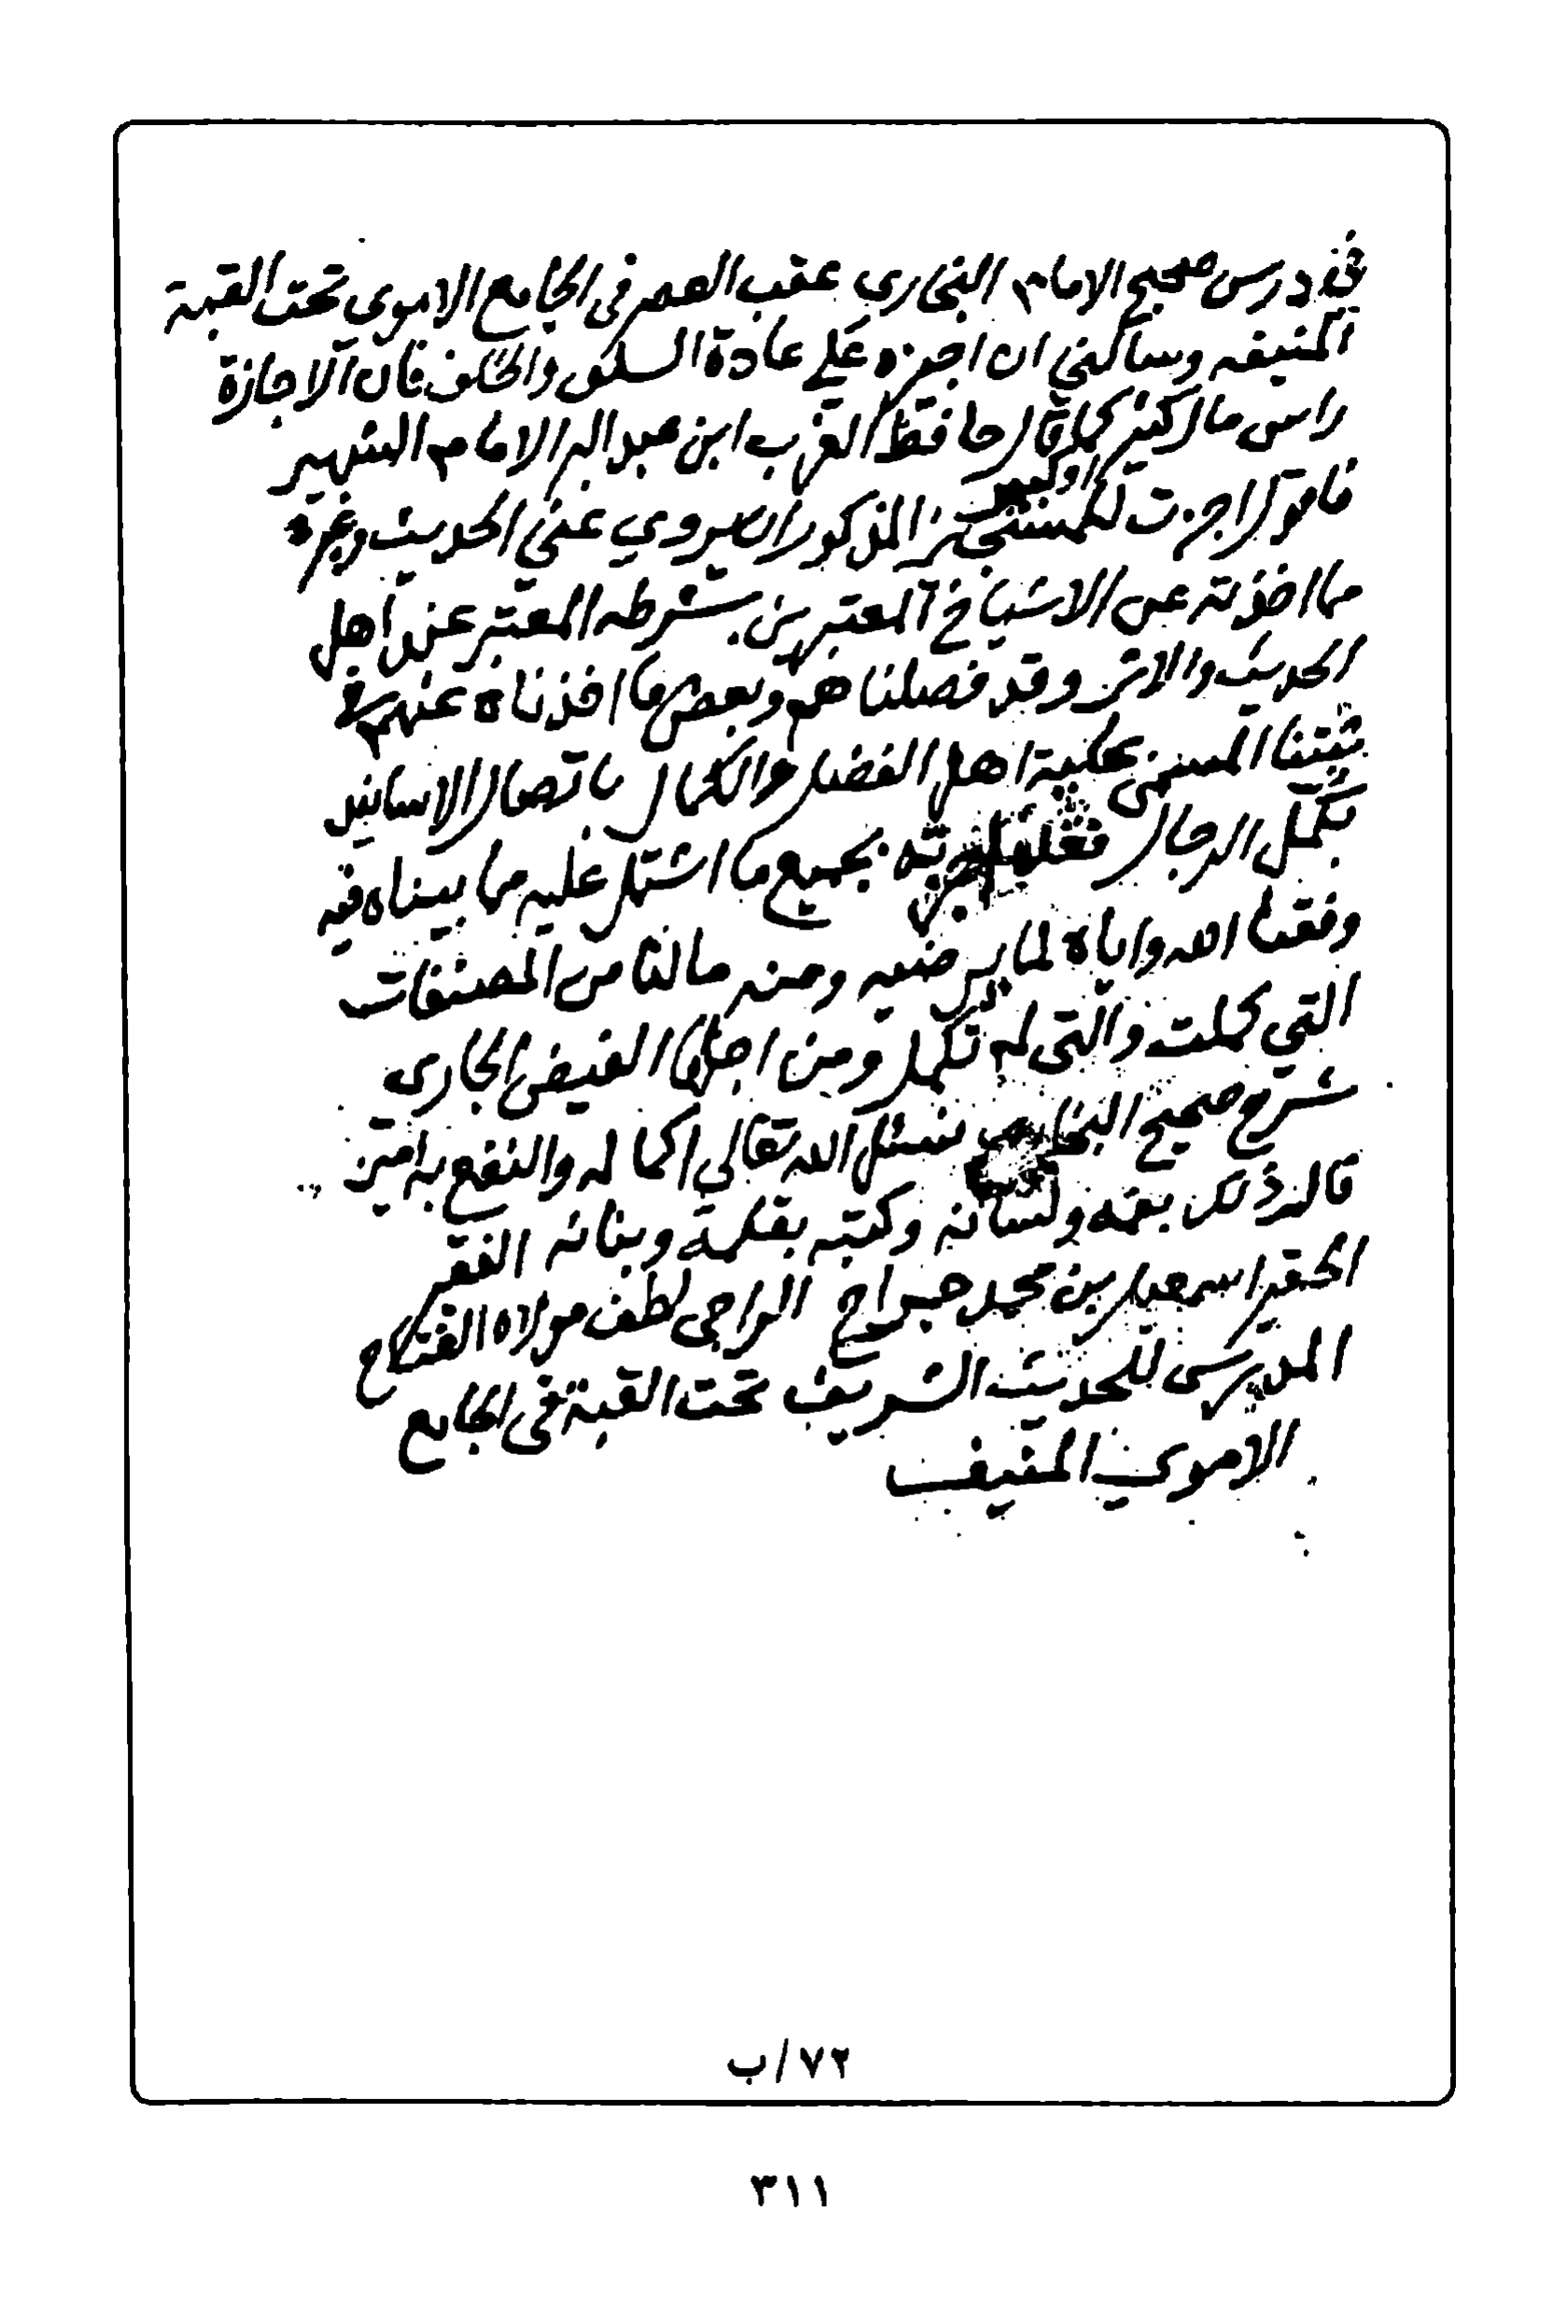 في درس صحيح الامام البخاري عقب العصر في الجامع الاموي تحت القبة
المنيفه وسالني ان اجيزه على عادة السلف والخلف فان الاجازة
راس مال كبير كما قال حافظ الغرب ابن عبد البر الامام الشهير
فاقول اجزت للمستجيز المذكور ان يروي عني الحديث وغيره
مما اخذته عن الاشياخ المعتبرين بشرطه المعتبر عند اهل
الحديث والاثر وقد فصلناهم وبعض ما اخذناه عنهم في
ثبتنا المسمى بحلية اهل الفضل والكمال باتصال الاسانيد
بكمل الرجال بجميع ما اشتمل عليه مما بيناه فيه
وفقنا الله واياه لما يرضيه ومنه ما لنا من المصنفات
التي كملت والتي لم تكمل ومن اجلها الفيض الجاري
شرح صحيح البخاري نسئل الله تعالى اكماله والنفع به امين
قال ذلك بفمه ولسانه وكتبه بقلمه وبنانه الفقير
الحقير اسمعيل بن محمد جراح الراجي لطف مولاه الفتاح
المدرس للحديث الشريف تحت القبة في الجامع
الاموي المنيف
٧٢/ب
٣١١